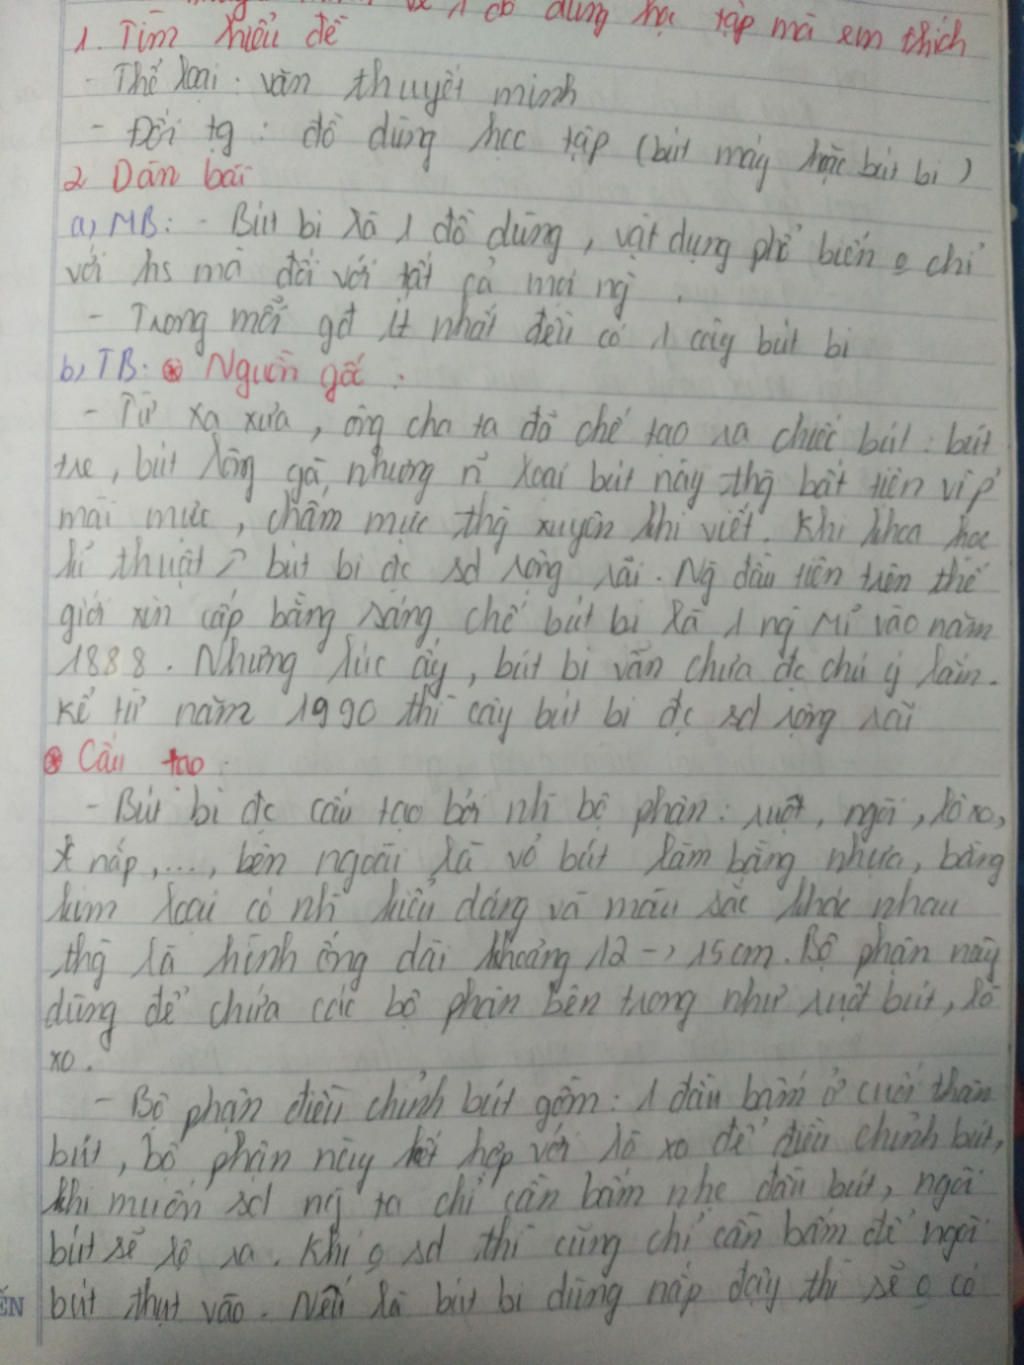 về 1 đồ dùng học tập mà em thích
1. Tìm hiểu đề
- Thể loại: văn thuyết minh
- Đối tg: đồ dùng học tập (bút máy hoặc bút bi)
2 Dàn bài
a, MB: - Bút bi là 1 đồ dùng, vật dụng phổ biến o chỉ
với hs mà đối với tất cả mọi ng
- Trong mỗi gđ ít nhất đều có 1 cây bút bi
b, TB: Nguồn gốc:
- Từ xa xưa, ông cha ta đã chế tạo ra chiếc bút: bút
tre, bút lông gà, nhưng n~ loại bút này thg bất tiện vì p'
mài mực, chấm mực thg xuyên khi viết. Khi khoa học
kĩ thuật ↗ bút bi đc sd rộng rãi. Ng đầu tiên trên thế
giới xin cấp bằng sáng chế bút bi là 1 ng Mĩ vào năm
1888. Nhưng lúc ấy, bút bi vẫn chưa đc chú ý lắm.
Kể từ năm 1990 thì cây bút bi đc sd rộng rãi
Cấu tạo:
- Bút bi đc cấu tạo bởi nh` bộ phận: ruột, ngòi, lò xo,
nắp,...., bên ngoài là vỏ bút làm bằng nhựa, bằng
kim loại có nh` kiểu dáng và màu sắc khác nhau
thg là hình ống dài khoảng 12 -> 15cm. Bộ phận này
dùng để chứa các bộ phận bên trong như ruột bút, lò
xo.
- Bộ phận điều chỉnh bút gồm: 1 đầu bấm ở cuối thân
bút, bộ phận này kết hợp với lò xo để điều chỉnh bút,
khi muốn sd ng ta chỉ cần bấm nhẹ đầu bút, ngòi
bút sẽ lộ ra. Khi o sd thì cũng chỉ cần bấm để ngòi
bút thụt vào. Nếu là bút bi dùng nắp đậy thì sẽ o có